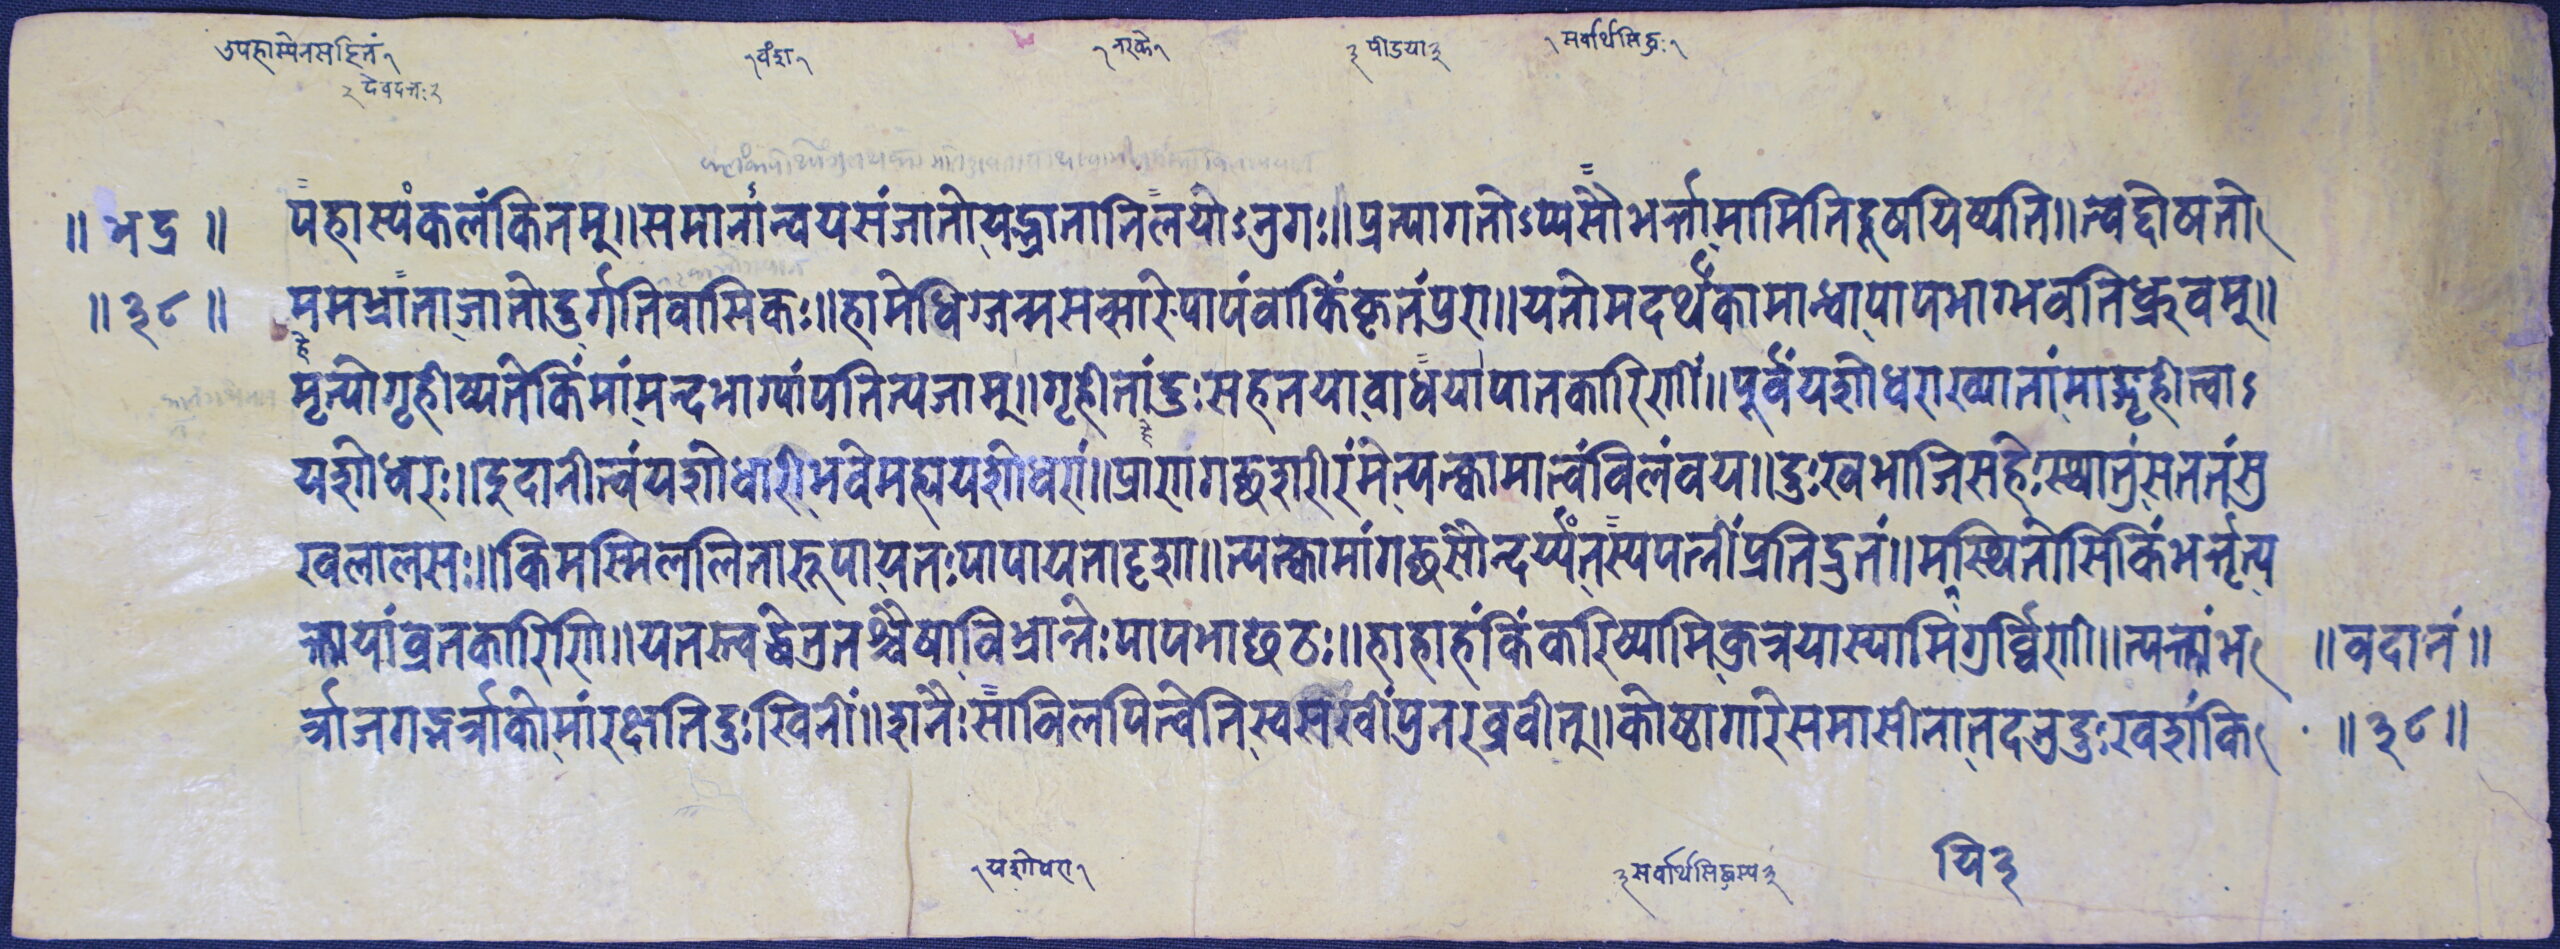 उपहास्येनसहितं१
१वंश१
१नरके१
३पीडया३
१सर्वार्थसिद्धः१
२देवदत्तः२
॥भद्र॥ पहास्यंकलंकितम्॥समानान्वयसंजातोयद्भ्रातानिलयोऽनुगः॥प्रत्यागतोऽप्यसौभर्त्तामामितिदूषयिष्यति॥त्वद्दोषतो
॥३८॥ ममभ्राताजातोदुर्गतिवासिकः॥हामेधिग्जन्मसत्सारेपापंवाकिंकृतंपुरा॥यतोमदर्थंकामान्धापापभाग्भवतिध्रुवम्॥
मृत्योगृहीष्यतेकिंमांमन्दभाग्यांपतित्यजाम्॥गृहीतांदुःसहतयाबाधयापातकारिणीं॥पूर्वंयशोधराख्यातांमाङ्गृहीत्वाऽ
यशोधरः॥इदानीत्वंयशोधारीभवेमह्ययशोधरां॥प्राणगच्छशरीरंमेत्यक्त्वामात्वंविलंवय॥दुःखभाजिसहेःस्थातुंसततंसु
खलालसः॥किमस्मिललितारूपायतःपापायतादृशा॥त्यक्त्वामांगच्छसौन्दर्य्यंतस्यपत्नींप्रतिद्रुतं॥मस्थितोसिकिंभर्त्तृत्य
क्तायांव्रतकारिणि॥यतस्त्वद्धेतुतश्चैषाविभ्रान्तेःपापभाछठः॥हाहाहंकिंकरिष्यामिकुत्रयास्यामिगुर्व्विणी॥त्यक्तांभ ॥वदानं॥
र्त्त्राजगद्भर्त्त्राकोमांरक्षतिदुःखिनीं॥शनैःसाविलपित्वेतिस्वसखींपुनरब्रवीत्॥कोष्ठागारेसमासीनातदनुदुःखशंकि ॥३८॥
१यशोधरा१
३सर्वार्थसिद्धस्य३
यि३